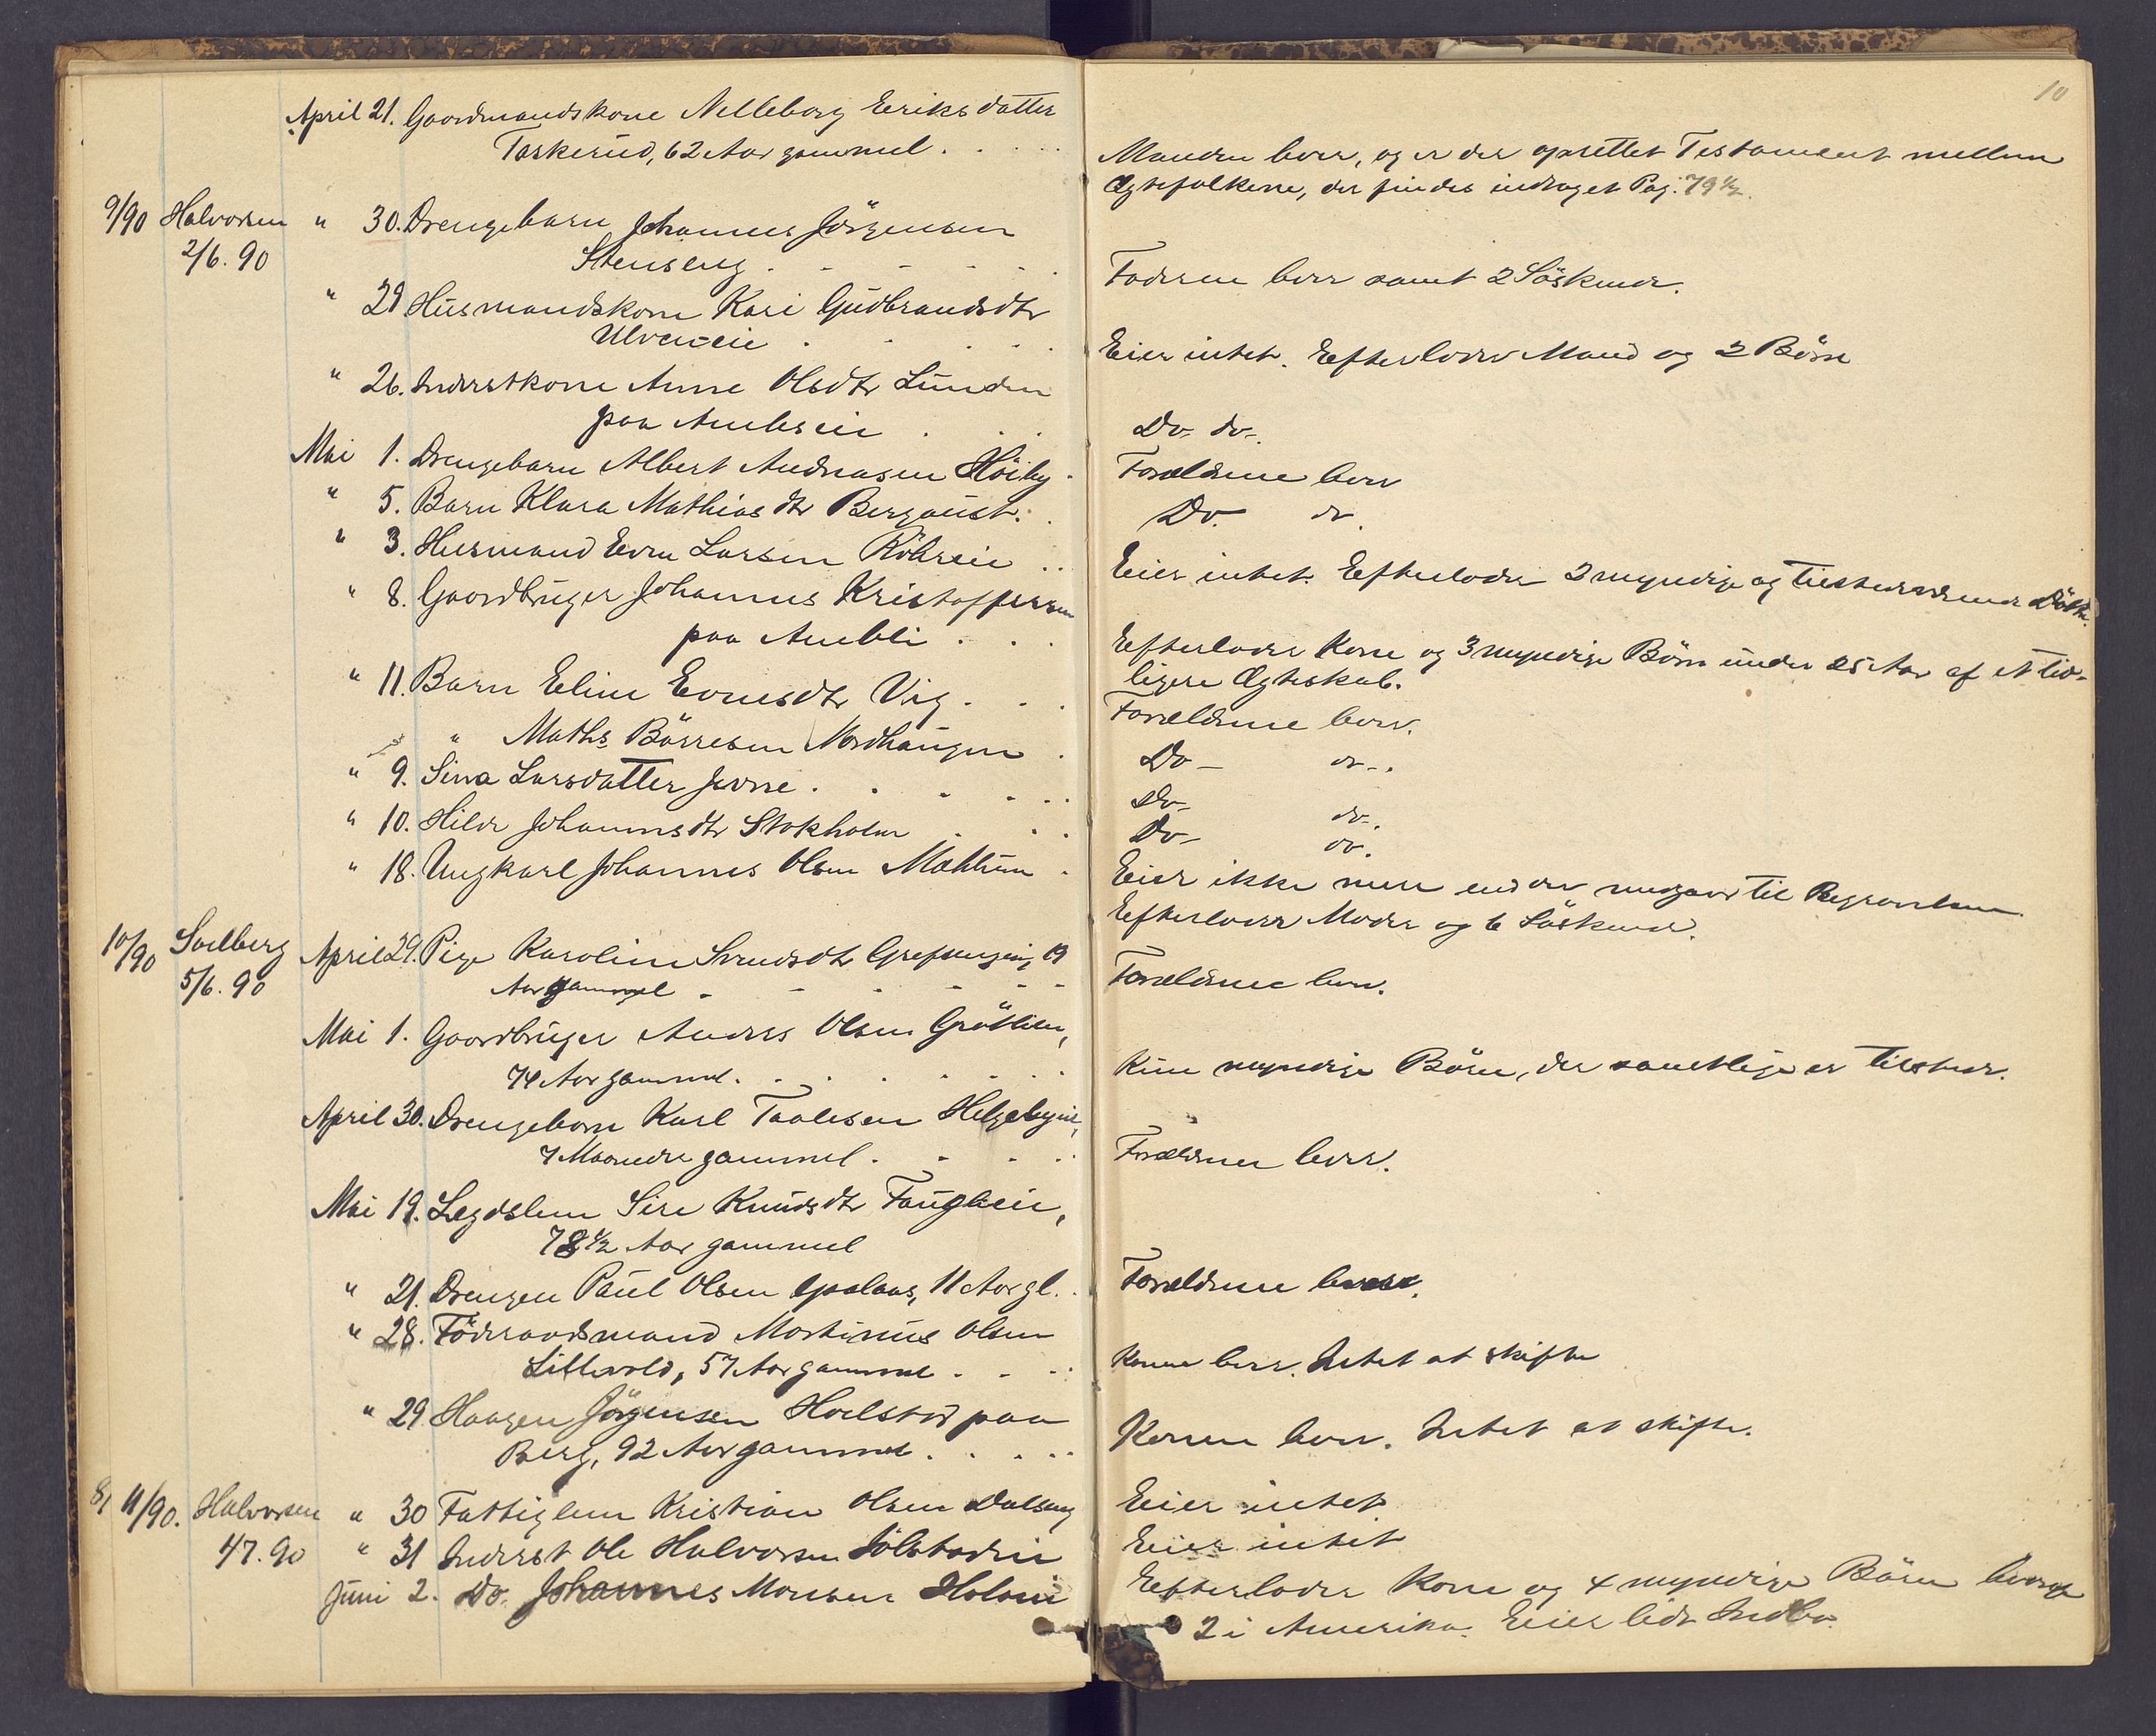 10
April 21. Gaardmandskone Nilleborg Eeriksdatter
Taskerud, 62 Aar gammel . . . .
Manden lever, og er der oprettet Testament mellem
Ægtefolkene, der findes indtaget Pag. 79 1/2
9/90 Halvorsen " 30. Drengebarn Johannes Jörgensen
2/6. 90 Stenseng . . . . .
Faderen lever samt 2 Söskende.
" 29 Husmandskone Kari Gudbrandsdtr
Ulveneie . . . . .
Eier intet. Efterlader Mand og 2 Börn
" 26. Inderstkone Anne Olsdtr Lunden
paa Ambseie . . .
Do do.
Mai 1. Drengebarn Albert Andreasen Höiby .
Forældrene lever
" 5. Barn Klara Mathiasdtr Bergaust. .
Do. do.
" 3. Husmand Even Larsen Röhreie . .
Eier intet. Efterlader 2 myndige og tilstedeværende Döttr.
" 8. Gaardbruger Johannes Kristoffersen
paa Ambli . . .
Efterlader Kone og 3 myndige Börn under 25 Aar af et tid-
ligere Ægteskab.
" 11. Barn Eline Evensdtr Vig . . .
Forældrene lever.
" Maths Börresen Nordhaugen .
Do - do - .
" 9. Sina Larsdatter Jevne . . . . .
Do - do - .
" 10. Hilda Johannesdtr Stokholm . . .
Do - do.
" 18. Ungkarl Johannes Olsen Mæhlum .
Eier ikke mere end der medgaar til Begravelsen.
Efterlader Moder og 6 Söskende.
10/90 Solberg April 29. Pige Karoline Svendsdtr Grefsengeng 19
5/6. 90 Aar gammel - - - - - -
Forældrene lever.
Mai 1. Gaardbruger Anders Olsen Gröttlien,
74 Aar gammel. . . . . . .
Kun myndige Börn, der samtlige er tilstede.
April 30. Drengebarn Karl Taalesen Helgebyeie,
7 Maaneder gammel . - - - .
Forældrene lever.
Mai 19. Legdslem Siri Knudsdtr Faugleie,
78 1/2 Aar gammel
" 21. Drengen Paul Olsen Opalaas, 11 Aar gl. .
Forældrene lever.
" 28. Föderaadsmand Martinus Olsen
Littevold, 57 Aar gammel . - - .
Konen lever. Intet at skifte
" 29. Haagen Jörgensen Hoelstad paa
Berg, 92 Aar gammel . . . . .
Konen lever. Intet at skifte.
11/90. Halvorsen " 30 Fattiglem Kristian Olsen Dalseng
Eier intet.
4/7. 90 " 31 Inderst Ole Halvorsen Sölvstadeie
Eier intet
Juni 2. Do. Johannes Monsen Holmeie
Efterlader Kone og 4 myndige Börn hvoraf
2 i Amerika. Eier lidt Indbo.